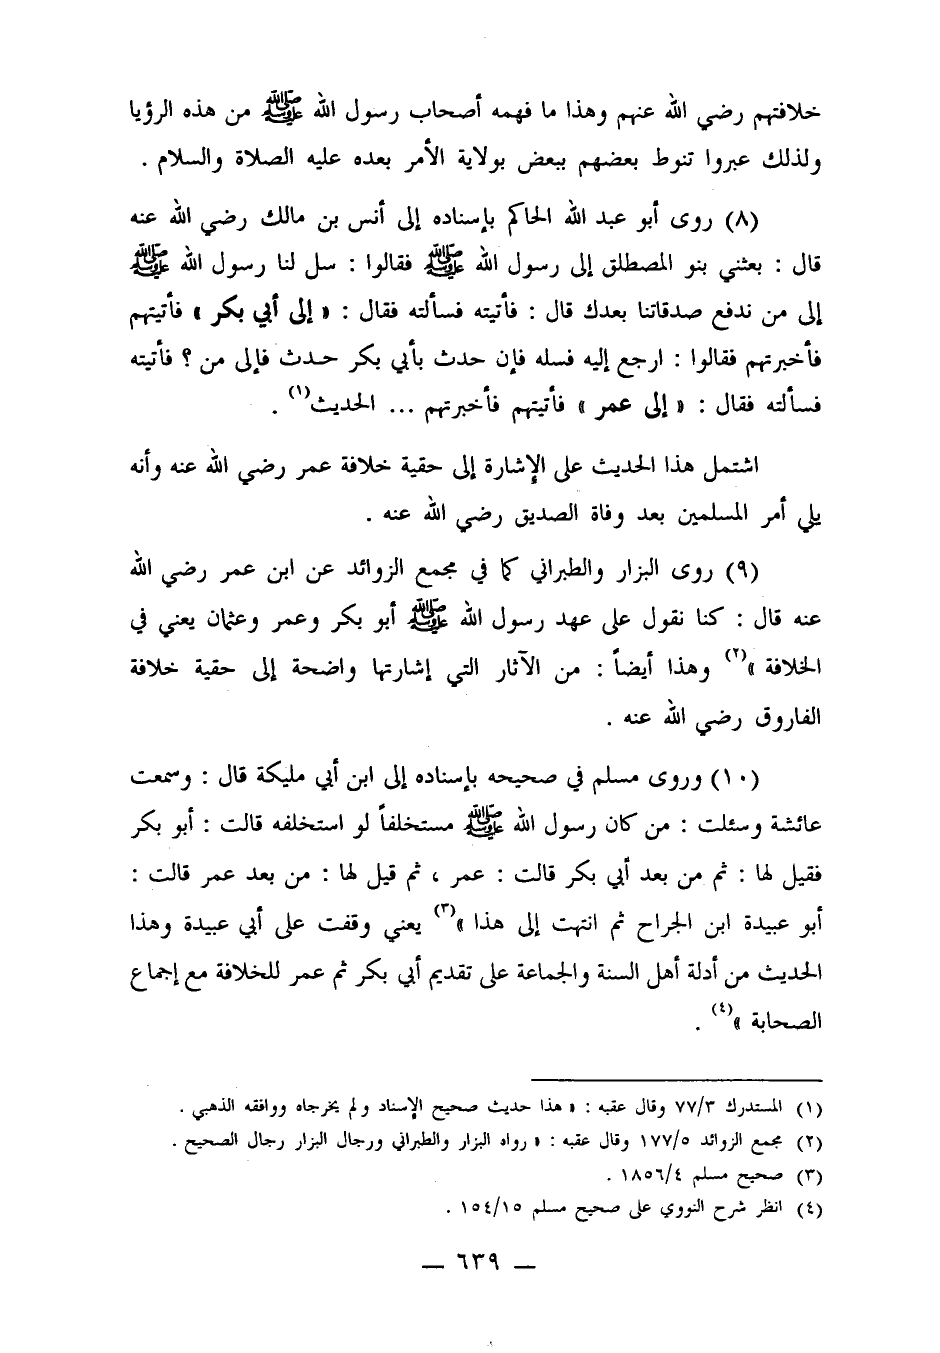 خلافتهم رضي الله عنهم وهذا ما فهمه أصحاب رسول الله ﷺ من هذه الرؤيا
ولذلك عبروا تنوط بعضهم ببعض بولاية الأمر بعده عليه الصلاة والسلام .
(٨) روى أبو عبد الله الحاكم بإسناده إلى أنس بن مالك رضي الله عنه
قال : بعثني بنو المصطلق إلى رسول الله ﷺ فقالوا : سل لنا رسول الله ﷺ
إلى من ندفع صدقاتنا بعدك قال : فأتيته فسألته فقال : « إلى أبي بكر » فأتيتهم
فأخبرتهم فقالوا : ارجع إليه فسله فإن حدث بأبي بكر حدث فإلى من ؟ فأتيته
فسألته فقال : « إلى عمر » فأتيتهم فأخبرتهم ... الحديث(١) .
اشتمل هذا الحديث على الإشارة إلى حقية خلافة عمر رضي الله عنه وأنه
يلي أمر المسلمين بعد وفاة الصديق رضي الله عنه .
(٩) روى البزار والطبراني كما في مجمع الزوائد عن ابن عمر رضي الله
عنه قال : كنا نقول على عهد رسول الله ﷺ أبو بكر وعمر وعثمان يعني في
الخلافة »(٢) وهذا أيضاً : من الآثار التي إشارتها واضحة إلى حقية خلافة
الفاروق رضي الله عنه .
(١٠) وروى مسلم في صحيحه بإسناده إلى ابن أبي مليكة قال : وسمعت
عائشة وسئلت : من كان رسول الله ﷺ مستخلفاً لو استخلفه قالت : أبو بكر
فقيل لها : ثم من بعد أبي بكر قالت : عمر ، ثم قيل لها : من بعد عمر قالت :
أبو عبيدة ابن الجراح ثم انتهت إلى هذا »(٣) يعني وقفت على أبي عبيدة وهذا
الحديث من أدلة أهل السنة والجماعة على تقديم أبي بكر ثم عمر للخلافة مع إجماع
الصحابة »(٤) .
(١) المستدرك ٧٧/٣ وقال عقبه : « هذا حديث صحيح الإسناد ولم يخرجاه ووافقه الذهبي .
(٢) مجمع الزوائد ١٧٧/٥ وقال عقبه : « رواه البزار والطبراني ورجال البزار رجال الصحيح .
(٣) صحيح مسلم ١٨٥٦/٤ .
(٤) انظر شرح النووي على صحيح مسلم ١٥٤/١٥ .
— ٦٣٩ —